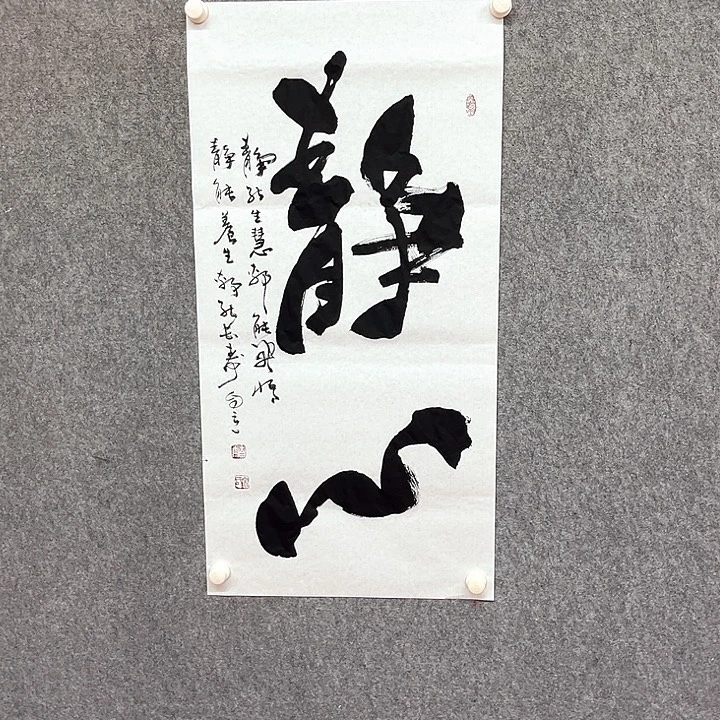 静心
静能生慧静能樂情
静能養生静能长寿